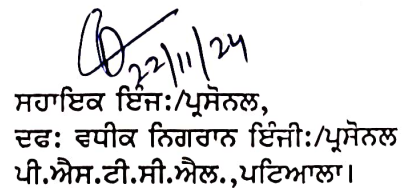 22/11/24
ਸਹਾਇਕ ਇੰਜ:/ਪ੍ਰਸੋਨਲ,
ਦਫ: ਵਧੀਕ ਨਿਗਰਾਨ ਇੰਜੀ:/ਪ੍ਰਸੋਨਲ
ਪੀ.ਐਸ.ਟੀ.ਸੀ.ਐਲ.,ਪਟਿਆਲਾ।